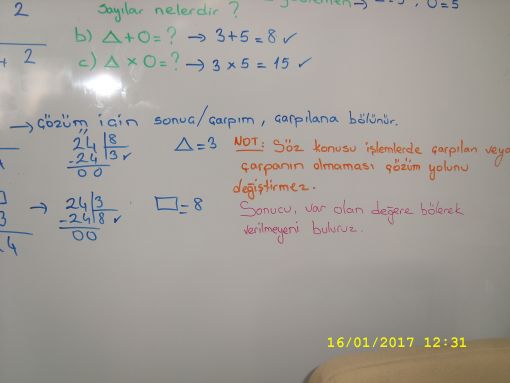 2
Sayılar nelerdir ?
O=5
b) △+O=? → 3+5=8 ✓
+ 2
c) △×O=? → 3×5=15 ✓
→ çözüm için sonuç/çarpım, çarpılana bölünür.
24|8
-24|3 ✓
00
△=3
NOT: Söz konusu işlemlerde çarpılan veya
çarpanın olmaması çözüm yolunu
değiştirmez.
3
4
→ 24|3
-24|8 ✓
00
□=8
Sonucu, var olan değere bölerek
verilmeyeni buluruz.
16/01/2017 12:31